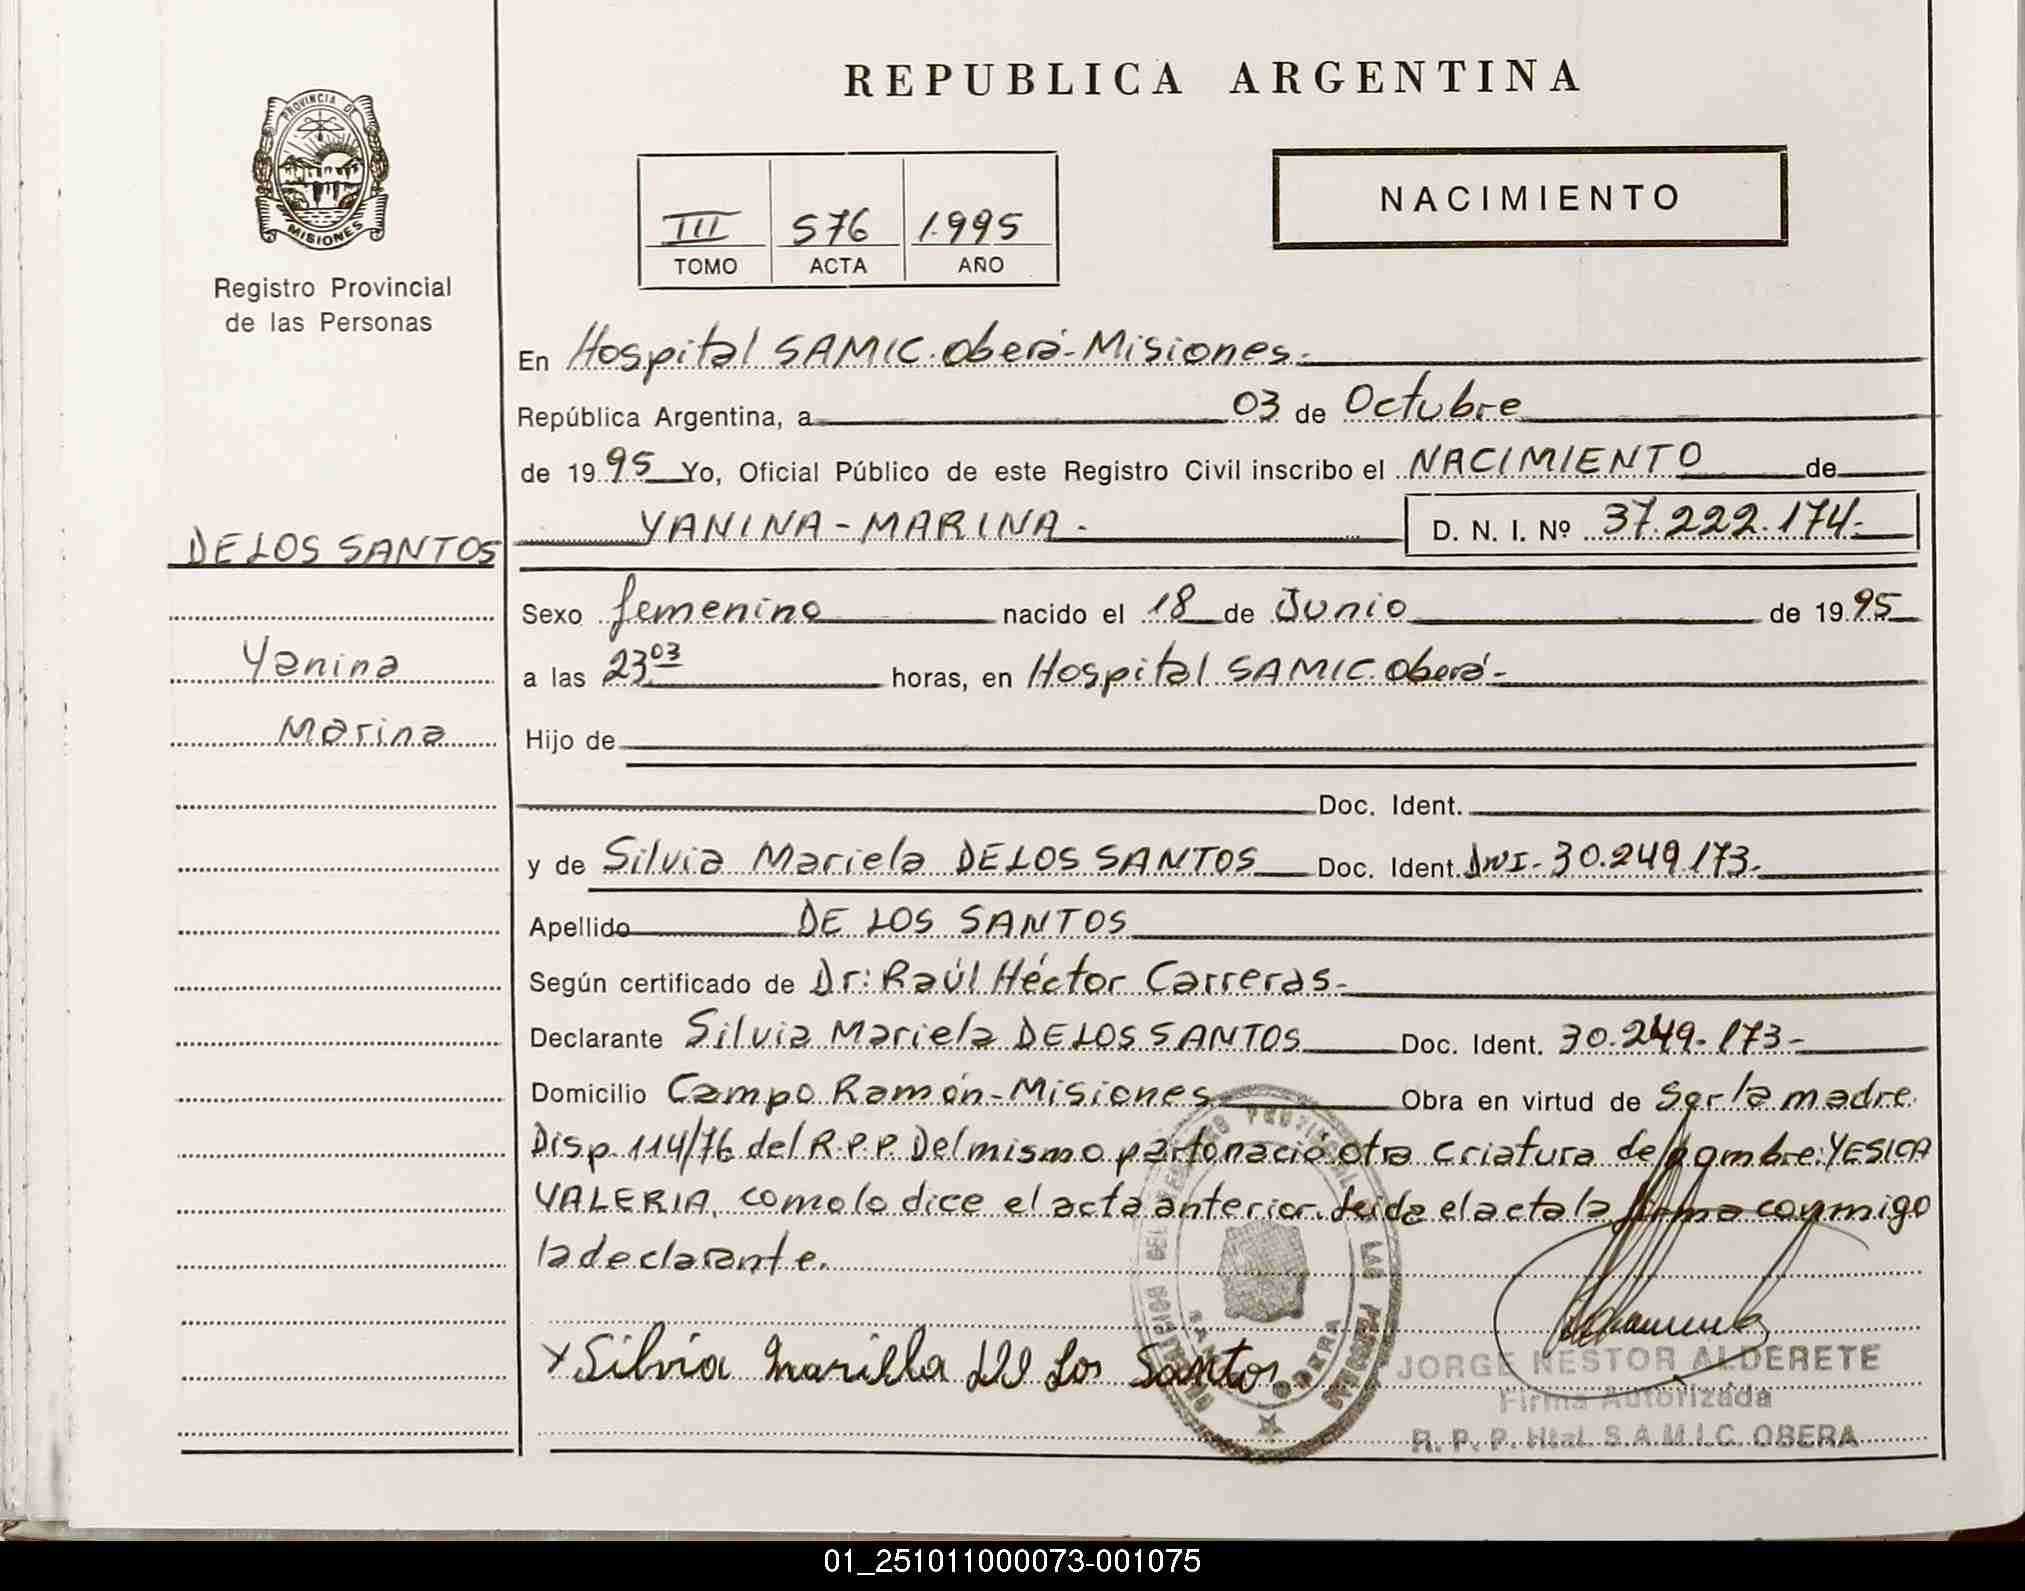 REPUBLICA ARGENTINA
PROVINCIA DE
MISIONES
Registro Provincial
de las Personas
NACIMIENTO
III 576 1.995
TOMO ACTA AÑO
En Hospital SAMIC. Oberá-Misiones.
República Argentina, a 03 de Octubre
de 1995 Yo, Oficial Público de este Registro Civil inscribo el NACIMIENTO de
DE LOS SANTOS
YANINA-MARINA. D. N. I. Nº 37.222.174.-
Sexo femenino nacido el 18 de Junio de 1995
Yanina
a las 23 03 horas, en Hospital SAMIC. Oberá-
Marina
Hijo de
Doc. Ident.
y de Silvia Mariela DE LOS SANTOS Doc. Ident. DNI-30.249.173.
Apellido DE LOS SANTOS
Según certificado de Dr: Raúl Héctor Carreras.-
Declarante Silvia Mariela DE LOS SANTOS Doc. Ident. 30.249.173-
Domicilio Campo Ramón-Misiones Obra en virtud de Ser la madre.
Disp. 114/76 del R.P.P. Del mismo parto nació otra criatura de nombre: YESICA
VALERIA, como lo dice el acta anterior. Leida el acta la firma conmigo
la declarante.
x Silvia Mariela De Los Santos
JORGE NESTOR ALDERETE
Firma Autorizada
R. P. P. Htal. S.A.M.I.C. OBERA
01_251011000073-001075